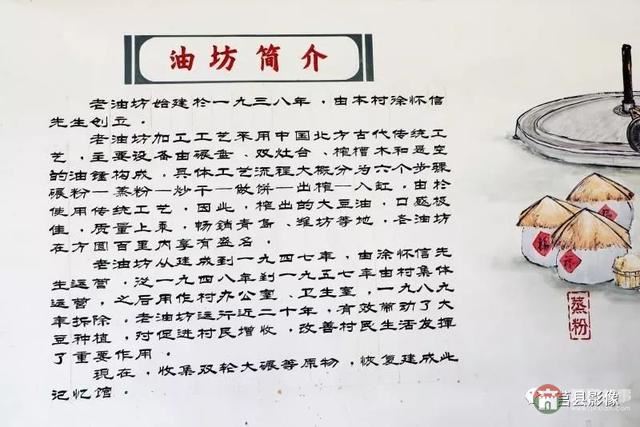 油坊简介
老油坊始建於一九三八年，由本村徐怀信
先生创立。
老油坊加工工艺采用中国北方古代传统工
艺，主要设备由碾盘、双灶台、榨槽木和悬空
的油锤构成，具体工艺流程大概分为六个步骤
碾粉一蒸粉一炒干一做饼一出榨一入缸。由於
使用传统工艺，因此，榨出的大豆油，口感极
佳，质量上乘，畅销青岛、潍坊等地，各油坊
在方圆百里内享有盛名。
老油坊从建成到一九四七年，由徐怀信先
生运营，从一九四八年到一九五七年由村集体
运营，之后用作村办公室、卫生室，一九八九
年拆除。老油坊运行近二十年，有效带动了大
豆种植，对促进村民增收，改善村民生活发挥
了重要作用。
现在，收集双轮大碾等原物，恢复建成此
记忆馆。
蒸粉
莒县影像